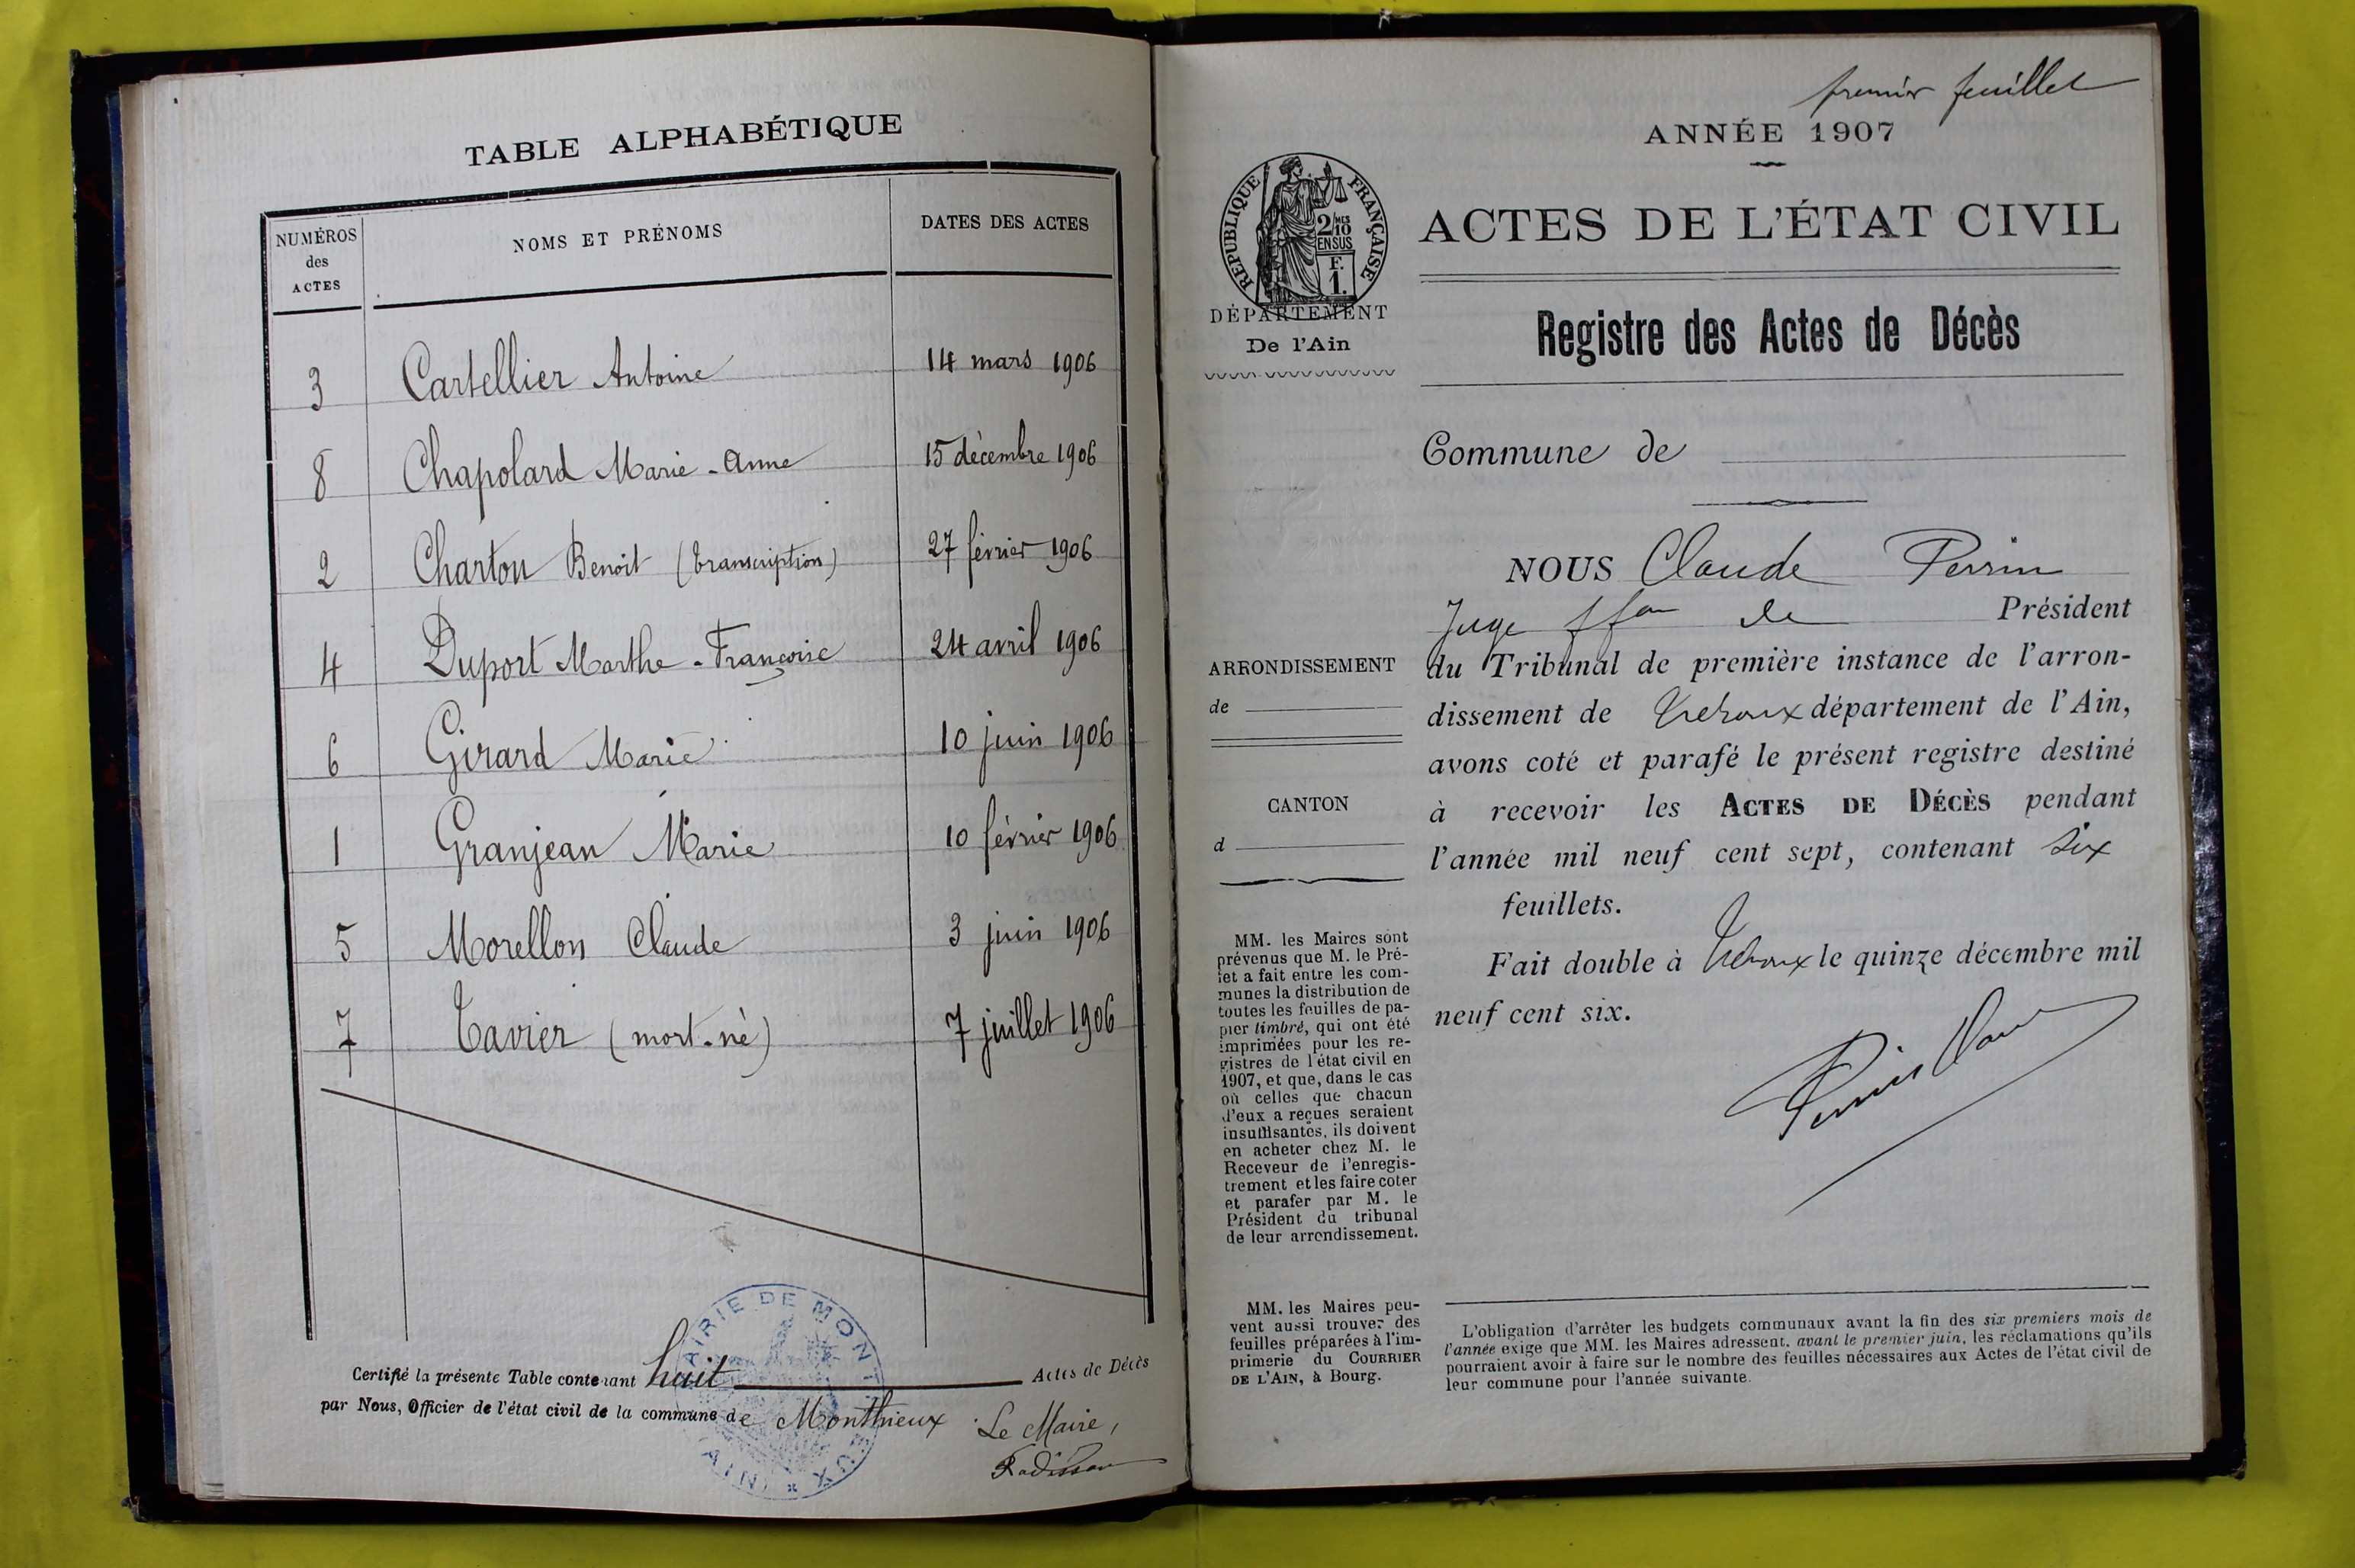 TABLE ALPHABÉTIQUE
NUMÉROS des ACTES | NOMS ET PRÉNOMS | DATES DES ACTES
3 Cartellier Antoine 14 mars 1906
8 Chapolard Marie-Anne 15 décembre 1906
2 Charton Benoit (transcription) 27 février 1906
4 Duport Marthe-Françoise 24 avril 1906
6 Girard Marie 10 juin 1906
1 Granjean Marie 10 février 1906
5 Morellon Claude 3 juin 1906
7 Tavier (mort-né) 7 juillet 1906
Certifié la présente Table contenant huit Actes de Décès
par Nous, Officier de l'état civil de la commune de Monthieux Le Maire,
Radisson
MAIRIE DE MONTHIEUX * (AIN) *
premier feuillet
ANNÉE 1907
RÉPUBLIQUE FRANÇAISE
2/10 MES
EN SUS
F.
1.
DÉPARTEMENT
De l'Ain
ACTES DE L'ÉTAT CIVIL
Registre des Actes de Décès
Commune de
NOUS Claude Perrin
Juge ffon de Président
du Tribunal de première instance de l'arron-
dissement de Trévoux département de l'Ain,
avons coté et parafé le présent registre destiné
à recevoir les ACTES DE DÉCÈS pendant
l'année mil neuf cent sept, contenant six
feuillets.
Fait double à Trévoux le quinze décembre mil
neuf cent six.
ARRONDISSEMENT
de
CANTON
d
MM. les Maires sont
prévenus que M. le Pré-
fet a fait entre les com-
munes la distribution de
toutes les feuilles de pa-
pier timbré, qui ont été
imprimées pour les re-
gistres de l'état civil en
1907, et que, dans le cas
où celles que chacun
d'eux a reçues seraient
insuffisantes, ils doivent
en acheter chez M. le
Receveur de l'enregis-
trement et les faire coter
et parafer par M. le
Président du tribunal
de leur arrondissement.
MM. les Maires peu-
vent aussi trouver des
feuilles préparées à l'im-
primerie du COURRIER
DE L'AIN, à Bourg.
L'obligation d'arrêter les budgets communaux avant la fin des six premiers mois de
l'année exige que MM. les Maires adressent, avant le premier juin, les réclamations qu'ils
pourraient avoir à faire sur le nombre des feuilles nécessaires aux Actes de l'état civil de
leur commune pour l'année suivante.